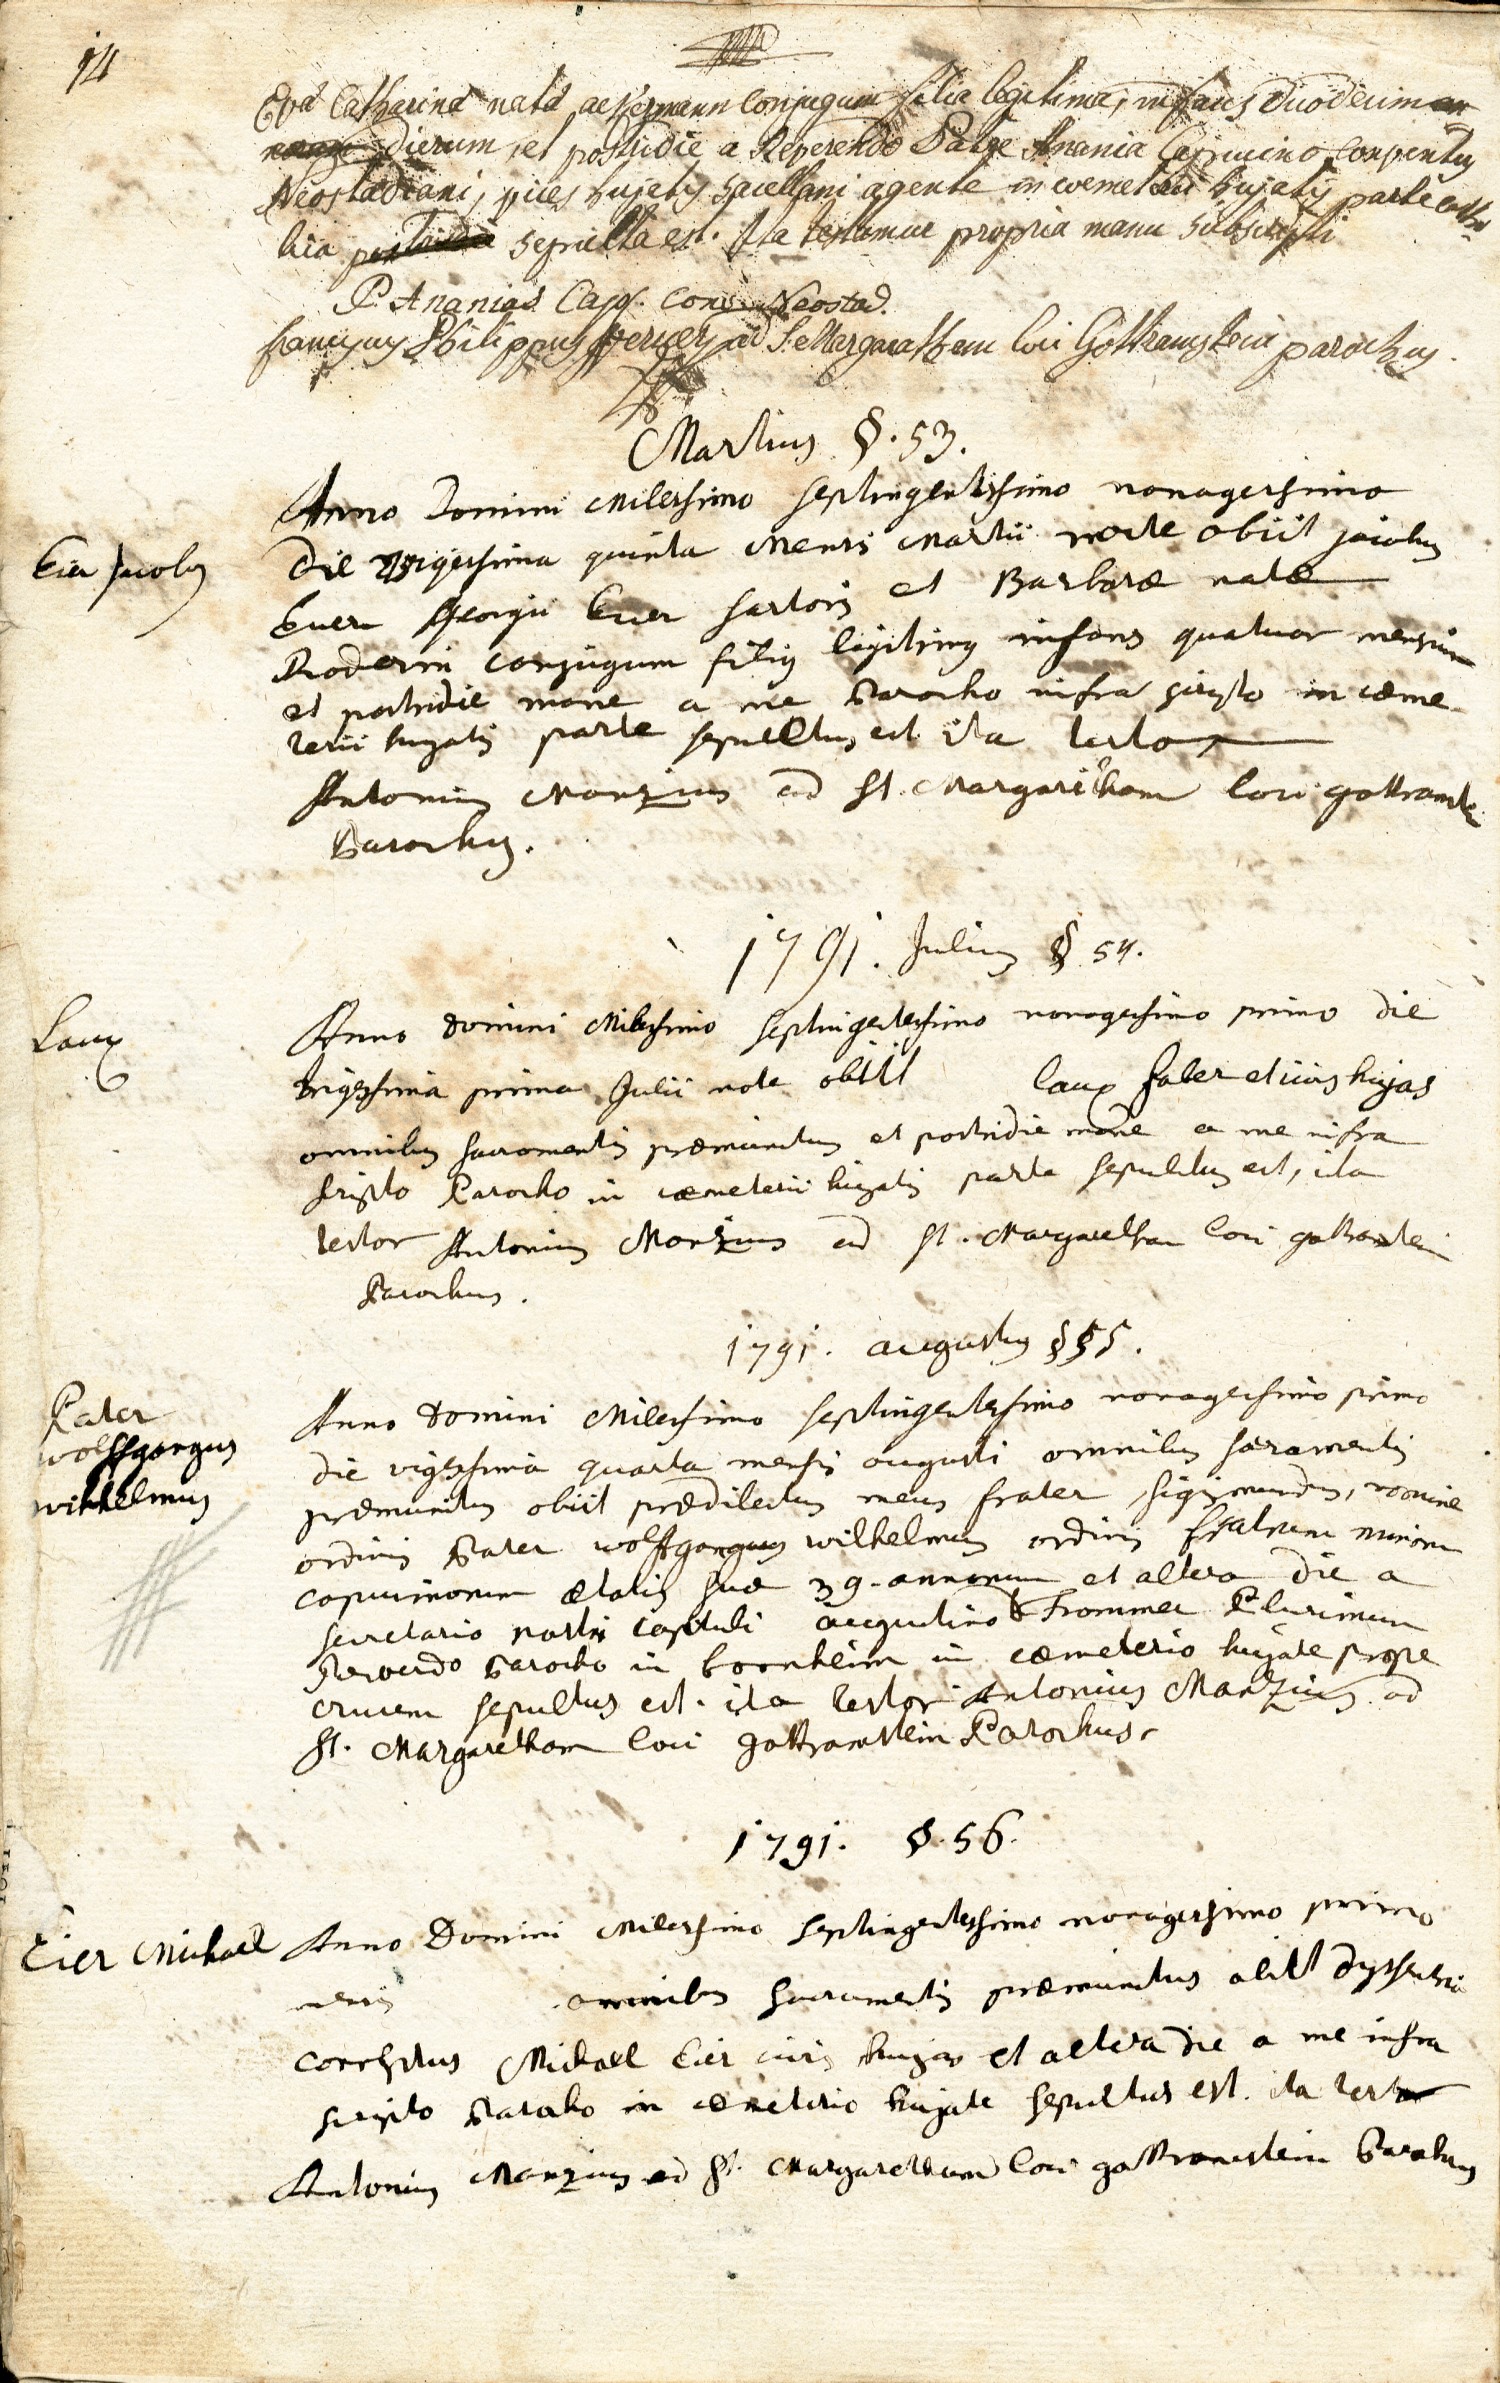 14
Eva Catharina nata ackermann conjugum filia legitima, infans duodecim
dierum, et postridie a Reverendo Patre Anania Capucino conventus
Neostadiani, vices hujatis sacellani agente in coemeterii hujatis parte catho
lica sepulta est. Ita testamur propria manu subscripti
P. Ananias Cap. conv. Neostad.
franciscus Philippus ad S. Margaretham loci Gottramstein parochus.
Martius §. 53.
Eier Jacobus
Anno Domini Milessimo septingentessimo nonagessimo
die vigessima quinta Mensis Martii nocte obiit jacobus
Euer Georgii Euer sartoris et Barbaræ natæ
conjugum filius legitimus infans quatuor mensium
et postridie mane a me Parocho infra scripto in cæme
terii hujatis parte sepultus est ita testor
Antonius Manzius ad St. Margaretham loci gottramstein
Parochus.
1791. Julius § 54.
Laux
Anno Domini Milessimo septingentessimo nonagessimo primo die
trigessima prima Julii nocte obiit laux faber et civis hujas
omnibus sacromentis præmunitus et postridie mane a me infra
scripto Parocho in cæmeterii hujatis parte sepultus est, ita
testor Antonius Manzius ad St. Margaretham loci gottramstein
Parochus.
1791. augustus § 55.
Pater
wolffgangus
wilhelmus
Anno Domini Milessimo septingentessimo nonagessimo primo
die vigessima quarta mensis augusti omnibus sacramentis
præmunitus obiit prædilectus meus frater sigismundus, nomine
ordinis Pater wolffgangus wilhelmus ordinis fratrum minorum
capucinorum ætatis suæ 39. annorum et altera die a
secretario nostri capituli augustino Frommer Plurimum
Reverendo Parocho in bornheim in cæmeterio hujate prope
crucem sepultus est. ita testor Antonius Manzius ad
St. Margaretham loci gottramstein Parochus.
1791. §. 56.
Eier Michael
Anno Domini Milessimo septingentessimo nonagessimo primo
mensis omnibus sacramentis præmunitus obiit dyssenteria
correptus Michael Eier civis hujas et altera die a me infra
scripto Parocho in cæmeterio hujate sepultus est. ita testor
Antonius Manzius ad St. Margaretham loci gottramstein Parochus